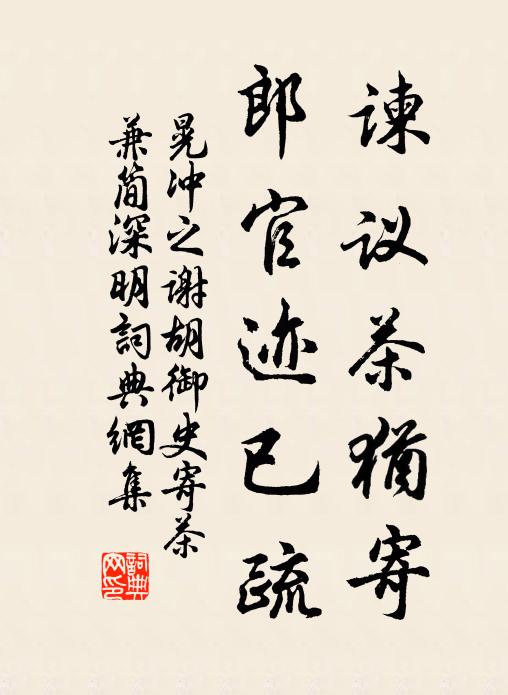 谏议茶犹寄
郎官迹已疏
晁冲之谢胡御史寄茶
兼简深明詞典網集
詞典网印